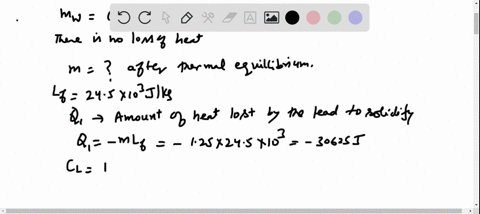 m_w = 
There is no loss of heat
m = ? after thermal equillibrium.
L_f = 24.5 × 10³ J/kg
Q₁ → Amount of heat lost by the lead to solidify
Q₁ = -mL_f = - 1.25 × 24.5 × 10³ = - 30625 J
C_L = 1